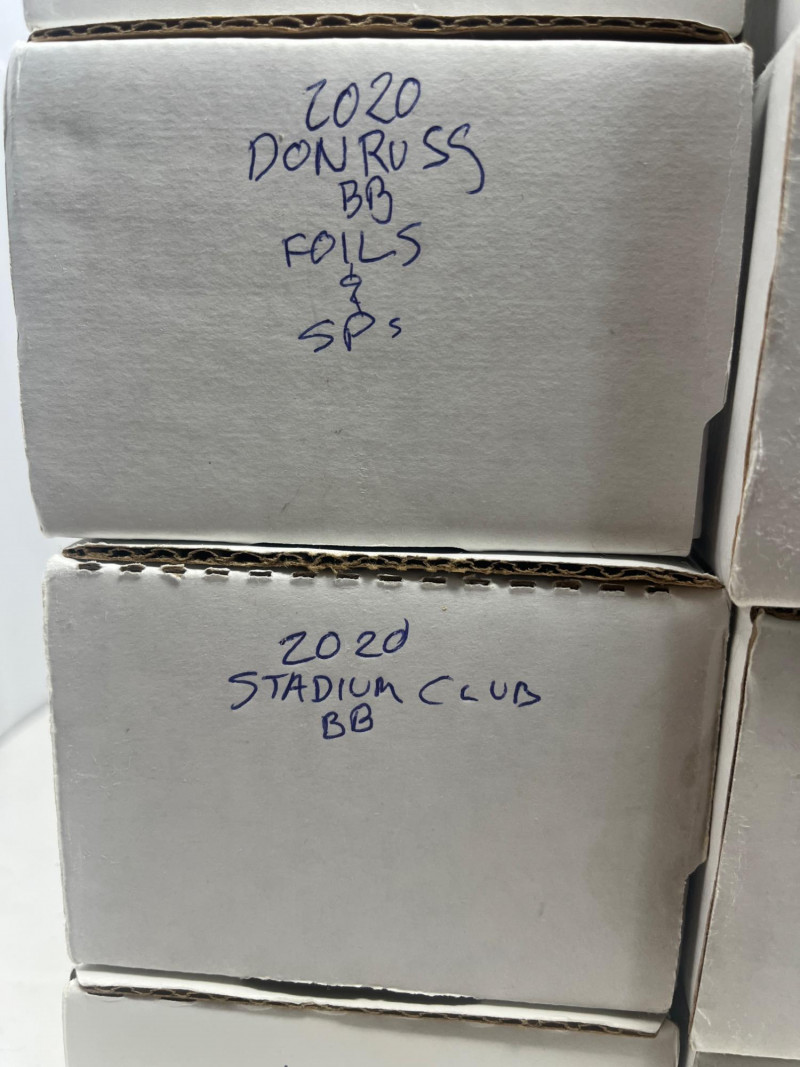 2020
DONRUSS
BB
FOILS
&
SPs
2020
STADIUM CLUB
BB